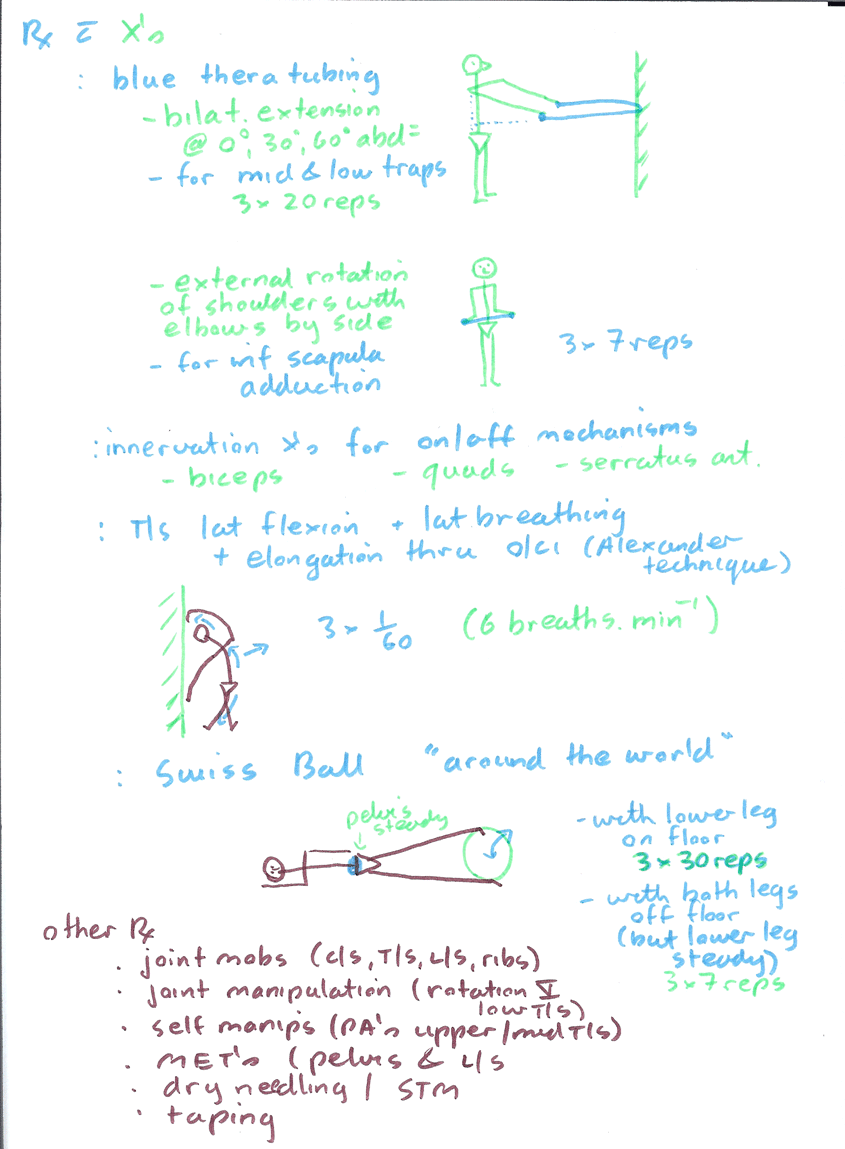 Rx c̄ X's
: blue thera tubing
- bilat. extension
@ 0°, 30°, 60° abd=
- for mid & low traps
3 x 20 reps
- external rotation
of shoulders with
elbows by side
- for inf scapula
adduction
3 x 7 reps
: innervation X's for on/off mechanisms
- biceps - quads - serratus ant.
: T/s lat flexion + lat breathing
+ elongation thru o/c1 (Alexander
technique)
3 x 1/60 (6 breaths. min⁻¹)
: Swiss Ball "around the world"
pelvis
steady
- with lower leg
on floor
3 x 30 reps
- with both legs
off floor
(but lower leg
steady)
3 x 7 reps
other Rx
. joint mobs (c/s, T/s, L/s, ribs)
. joint manipulation (rotation V
low T/s)
. self manips (PA's upper/mid T/s)
. MET's (pelvis & L/s
. dry needling / STM
. taping